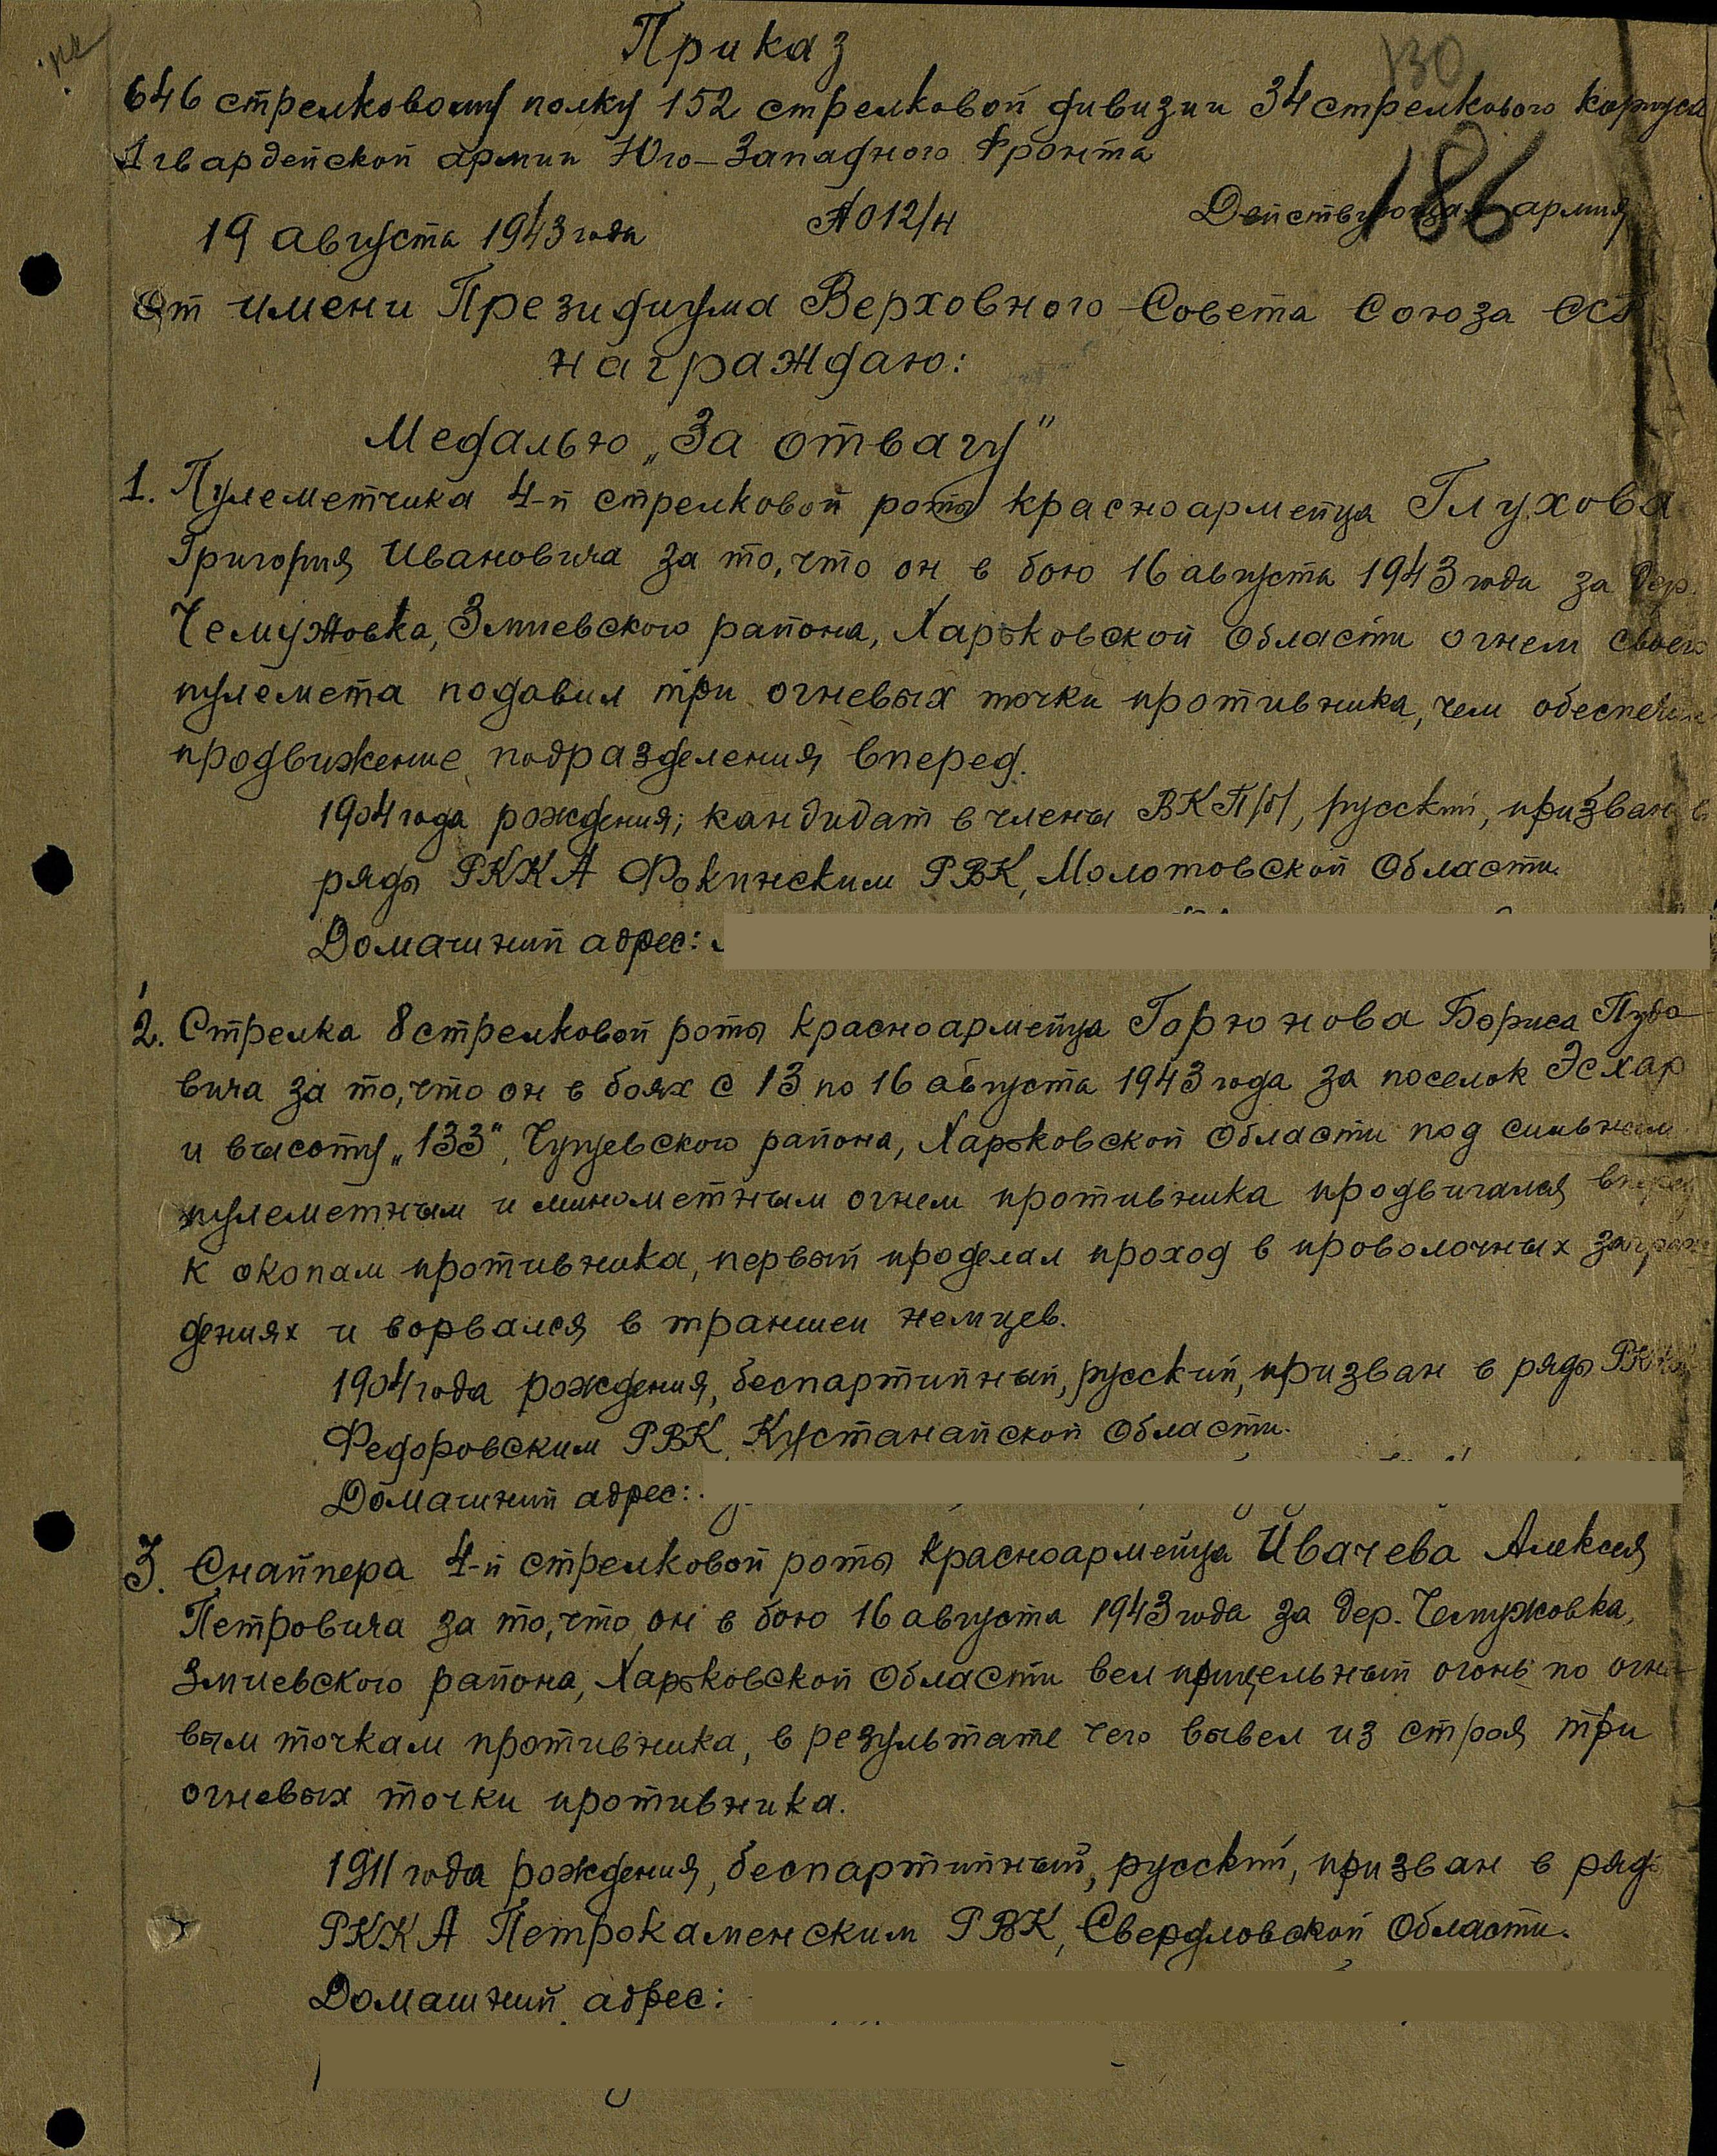 Приказ
130
646 стрелковому полку 152 стрелковой дивизии 34 стрелкового корпуса
1 гвардейской армии Юго-Западного Фронта
186
19 августа 1943 года №012/н Действующая армия
От имени Президиума Верховного Совета Союза ССР
награждаю:
Медалью „За отвагу"
1. Пулеметчика 4-й стрелковой роты красноармейца Глухова
Григория Ивановича за то, что он в бою 16 августа 1943 года за дер.
Чемужовка, Змиевского района, Харьковской Области огнем своего
пулемета подавил три огневых точки противника, чем обеспечил
продвижение подразделения вперед.
1904 года рождения; кандидат в члены ВКП/б/, русский, призван в
ряды РККА Фокинским РВК, Молотовской Области.
Домашний адрес:
2. Стрелка 8 стрелковой роты красноармейца Горюнова Бориса Пудо-
вича за то, что он в боях с 13 по 16 августа 1943 года за поселок Эсхар
и высоту „133", Чугуевского района, Харьковской Области под сильным
пулеметным и минометным огнем противника продвигался вперед
к окопам противника, первый проделал проход в проволочных заграж-
дениях и ворвался в траншеи немцев.
1904 года рождения, беспартийный, русский, призван в ряды РККА
Федоровским РВК, Кустанайской Области.
Домашний адрес:
3. Снайпера 4-й стрелковой роты красноармейца Ивачева Алексея
Петровича за то, что он в бою 16 августа 1943 года за дер. Чемужовка,
Змиевского района, Харьковской Области вел прицельный огонь по огне-
вым точкам противника, в результате чего вывел из строя три
огневых точки противника.
1911 года рождения, беспартийный, русский, призван в ряды
РККА Петрокаменским РВК, Свердловской Области.
Домашний адрес: